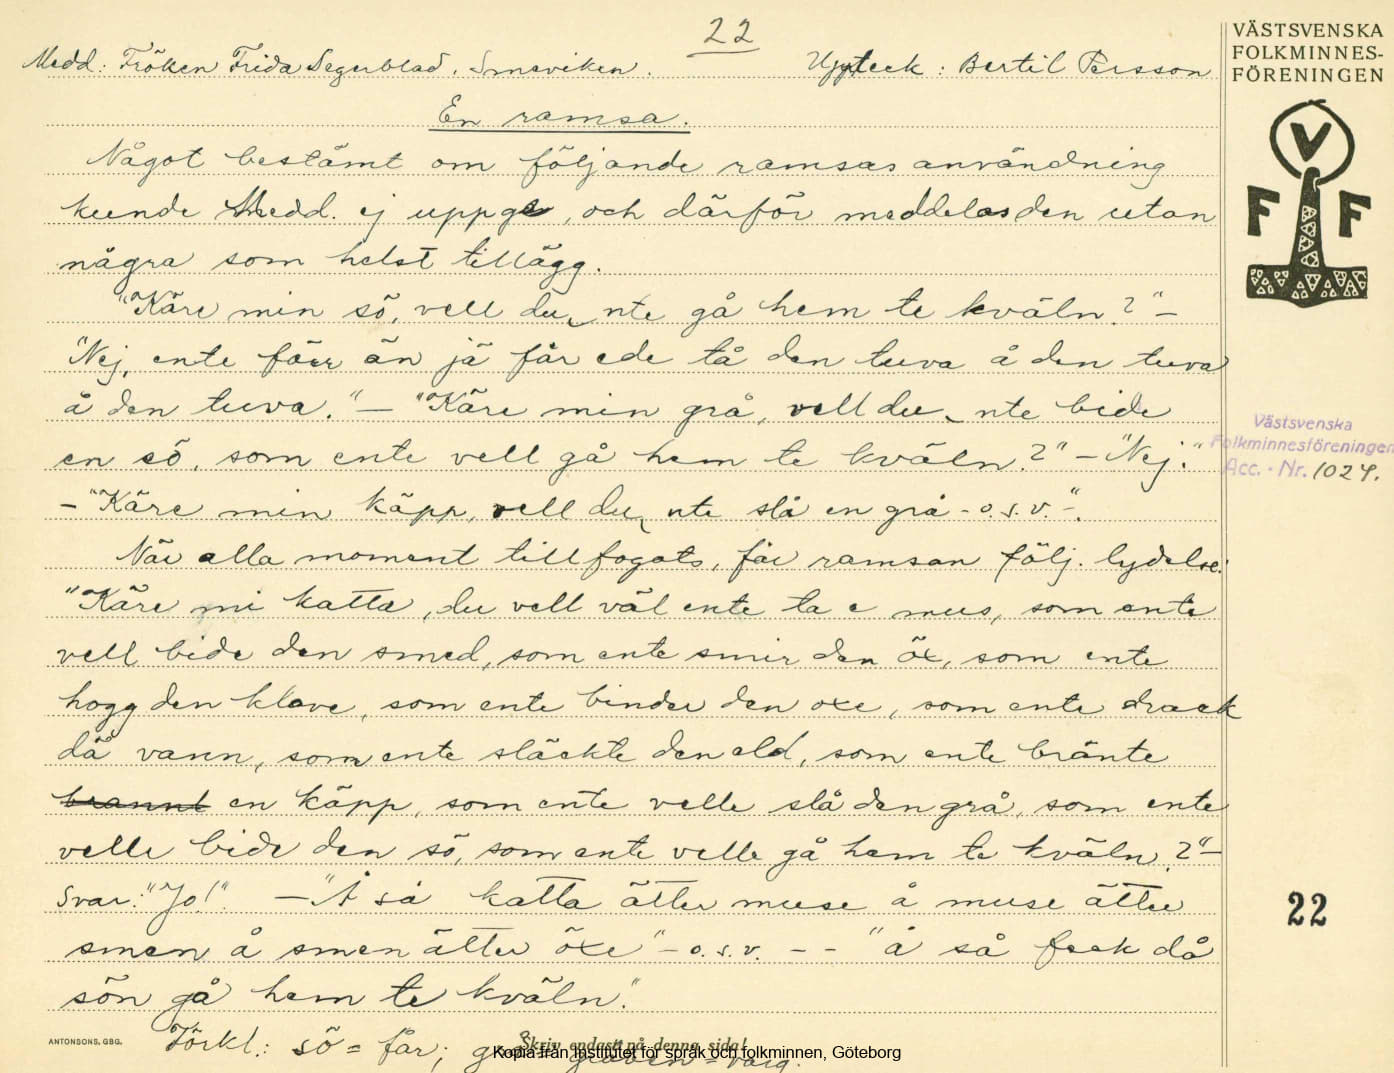 22
Medd: Fröken Frida Segerblad, Smeviken. Uppteck: Bertil Persson
En ramsa.
Något bestämt om följande ramsas användning
kunde Medd. ej uppge, och därför meddelas den utan
några som helst tillägg.
"Käre min sö, vell du nte gå hem te kväln?" –
"Nej, ente förr än jä får ede tå den tuva å den tuva
å den tuva." – "Käre min grå, vell du nte bide
en sö, som ente vell gå hem te kväln?" – "Nej."
– "Käre min käpp, vell du nte slå en grå – o.s.v. –".
När alla moment tillfogats, får ramsan följ. lydelse:
"Käre mi katta, du vell väl ente ta e mus, som ente
vell bide den smed, som ente smir den öx, som ente
hogg den klave, som ente binder den oxe, som ente drack
dä vann, som ente släckte den eld, som ente bränte
brannt en käpp, som ente velle slå den grå, som ente
velle bide den sö, som ente velle gå hem te kväln?" –
Svar: "Jo!". – "Å så katta ätter muse å muse ätter
smen å smen ätter öxe" – o.s.v. – – "å så feck då
sön gå hem te kväln."
Förkl.: sö = får; gråben = varg.
VÄSTSVENSKA
FOLKMINNES-
FÖRENINGEN
V
F F
Västsvenska
Folkminnesföreningen
Acc. - Nr. 1024.
22
ANTONSONS, GBG.
Skriv endast på denna sida!
Kopia från Institutet för språk och folkminnen, Göteborg